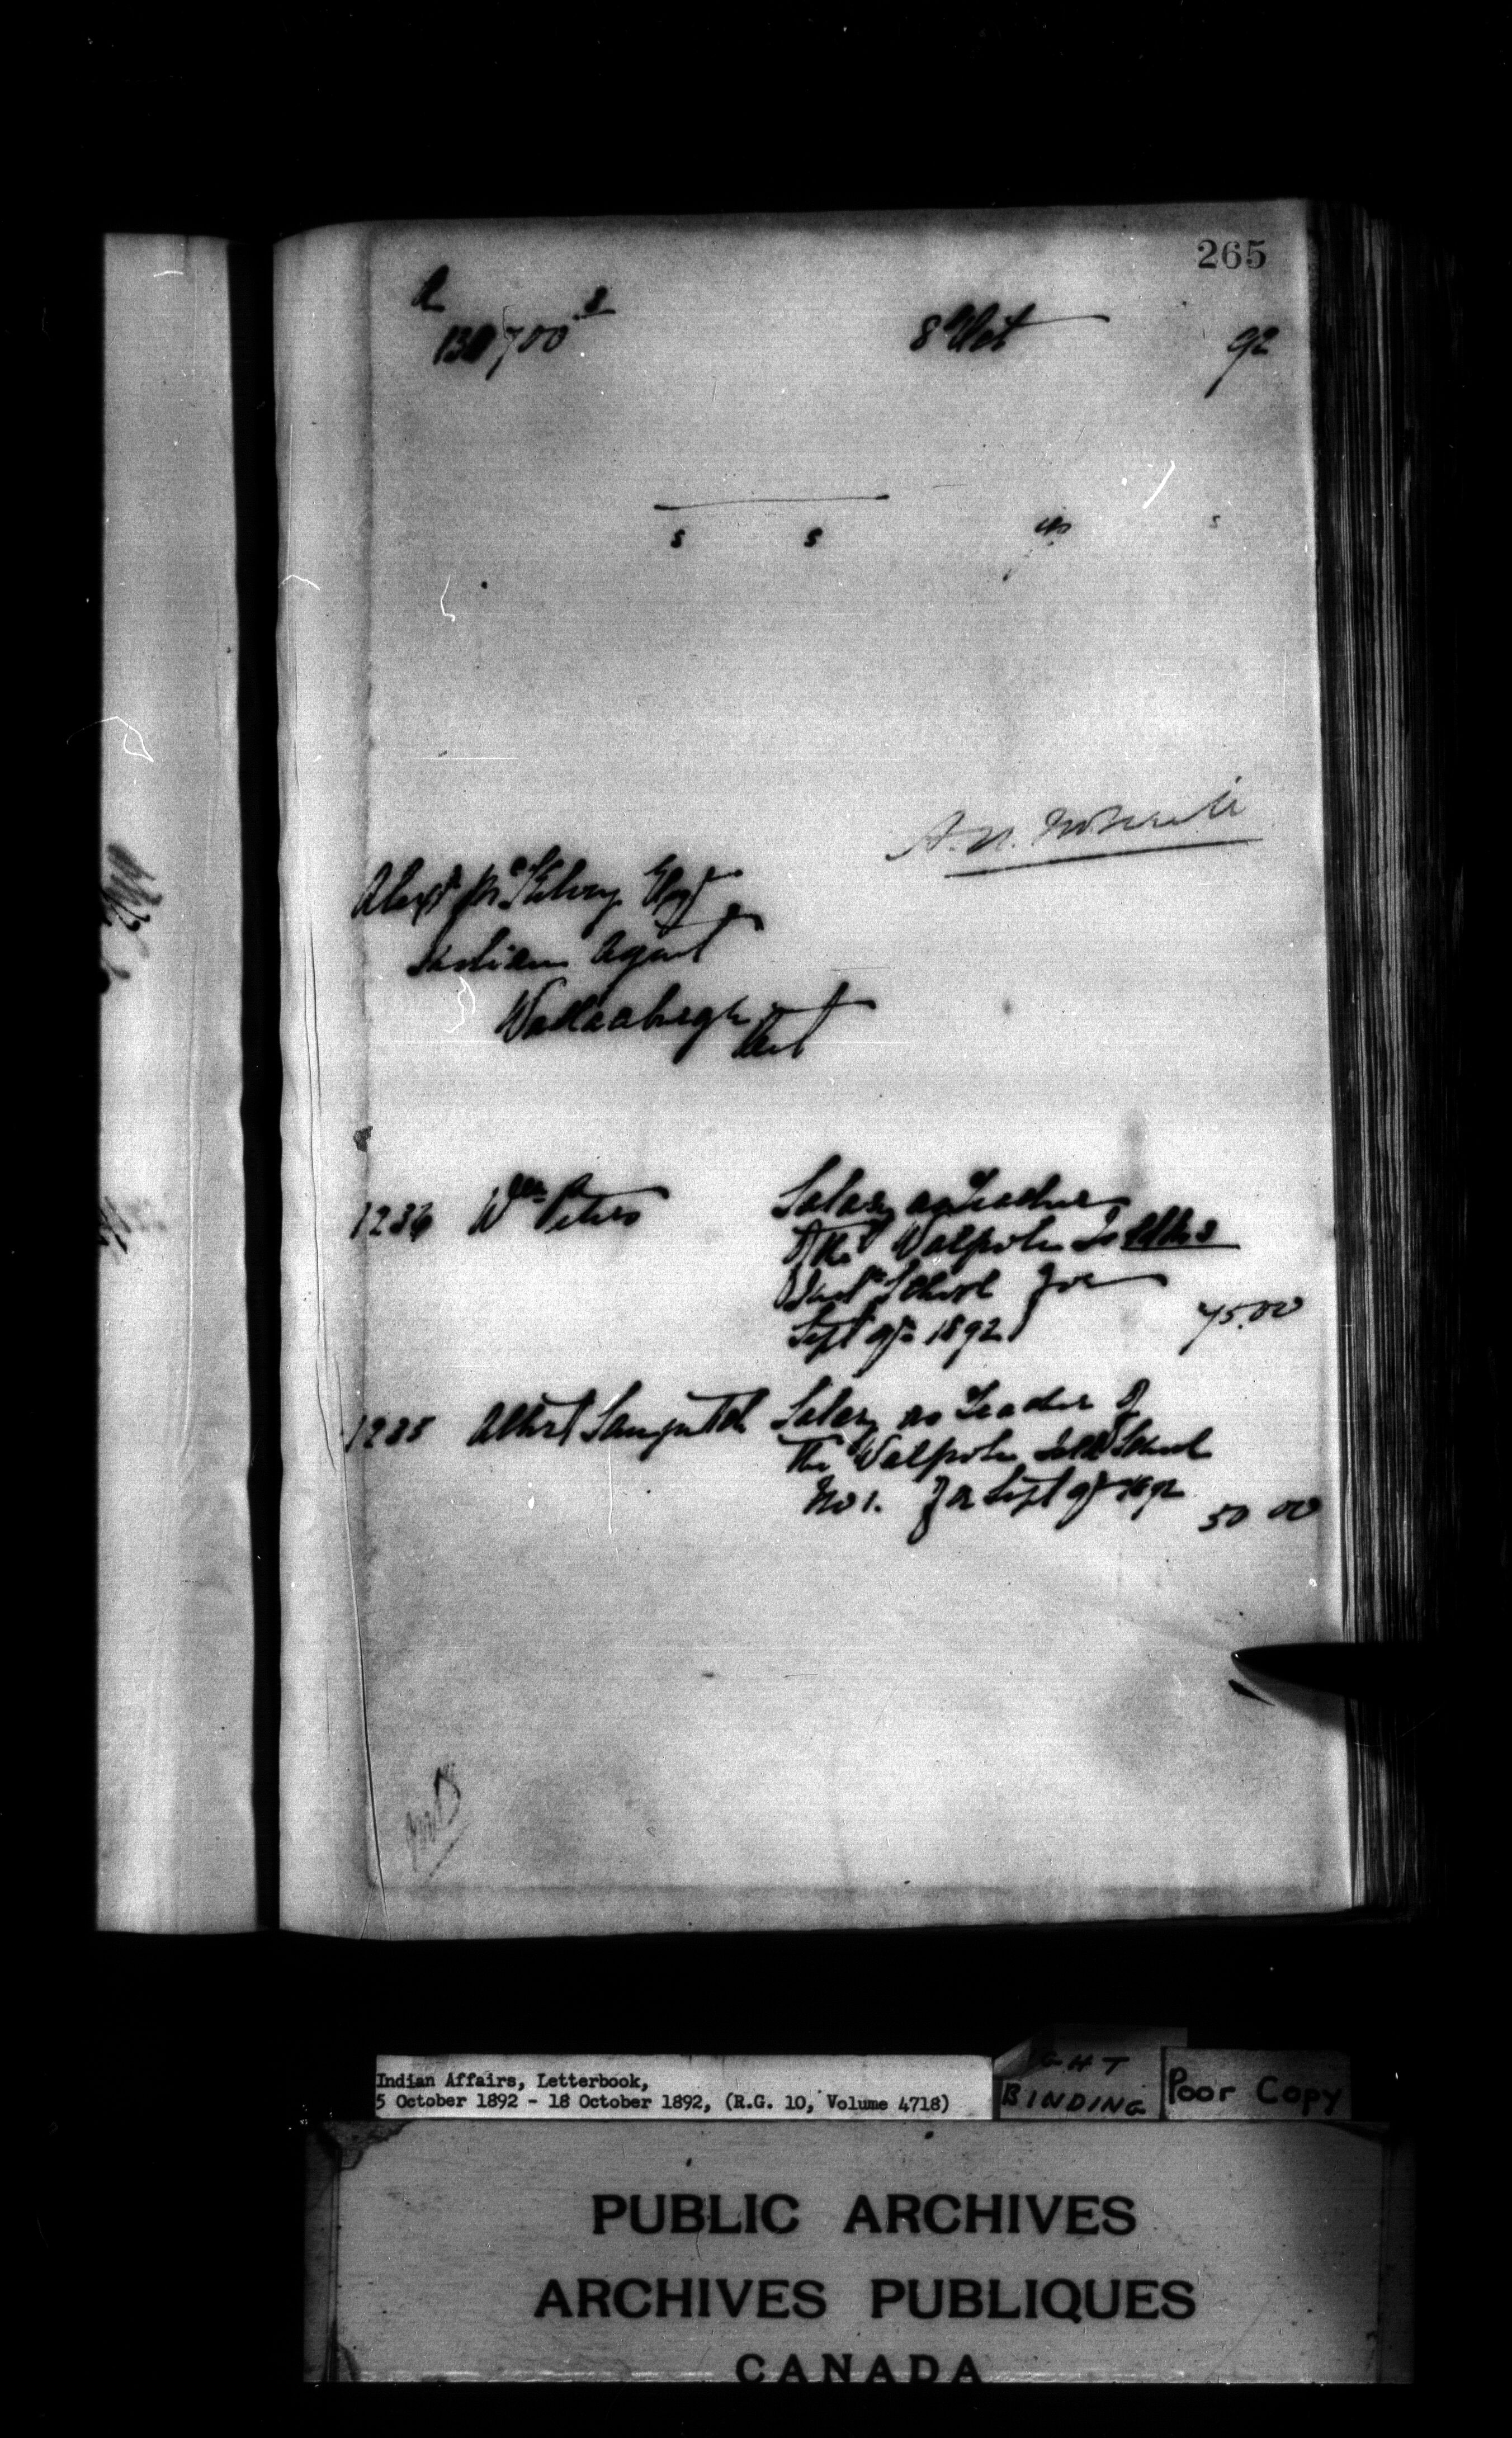 265
8 Oct 92
s s
Alexr McKelvey Esqr
Indian Agent
Wallaceburgh
Ont
1236 Wm Peters Salary as Teacher
of the Walpole
School for
Sept qr 1892 75.00
1235 Albert Salary as Teacher of
The Walpole Isld School
No 1. for Sept qr 1892 50 00
Indian Affairs, Letterbook,
5 October 1892 - 18 October 1892, (R.G. 10, Volume 4718)
BINDING
Poor Copy
PUBLIC ARCHIVES
ARCHIVES PUBLIQUES
CANADA